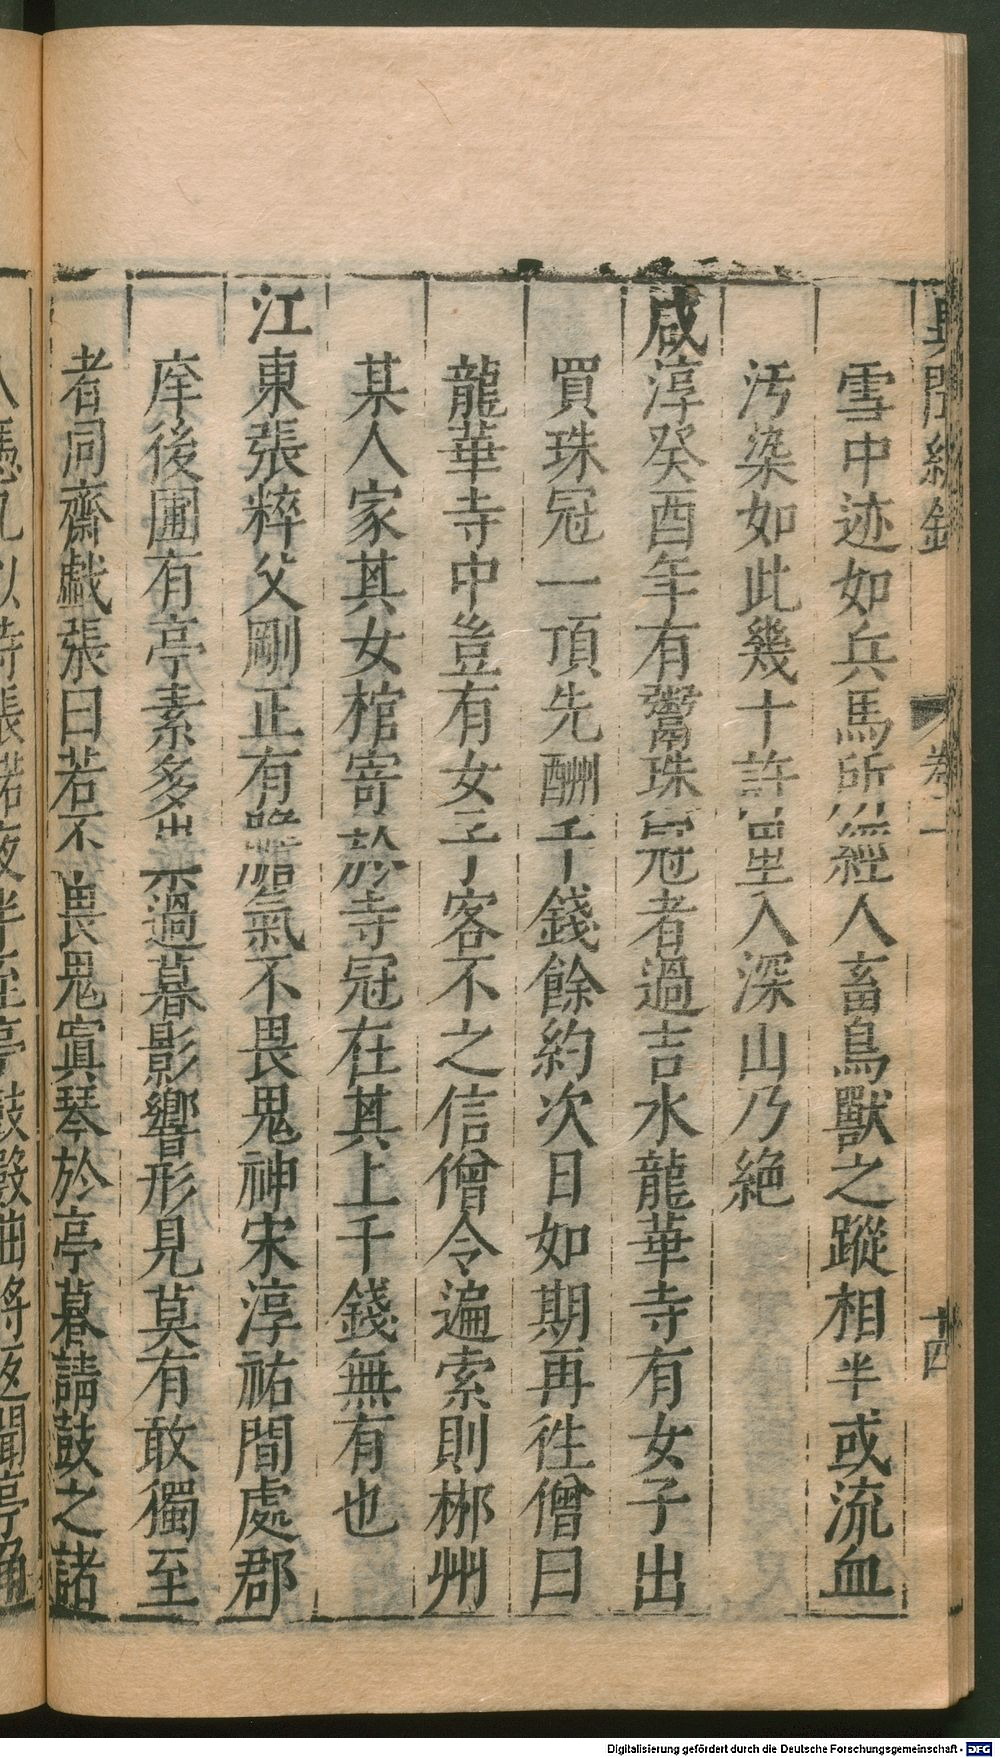 異聞總錄 卷二 十四
雪中迹如兵馬所經人畜鳥獸之蹤相半或流血
汚染如此幾十許里入深山乃絶
咸淳癸酉年有鬻珠冠者過吉水龍華寺有女子出
買珠冠一頂先酬千錢餘約次日如期再徃僧曰
龍華寺中豈有女子客不之信僧令遍索則郴州
某人家其女棺寄於寺冠在其上千錢無有也
江東張粹父剛正有膽氣不畏鬼神宋淳祐間處郡
庠後圃有亭素多祟過暮影響形見莫有敢獨至
者同齋戲張曰若不畏鬼寘琴於亭暮請鼓之諸
人憑几以待張諾夜半至亭鼓殿曲將返聞亭角
Digitalisierung gefördert durch die Deutsche Forschungsgemeinschaft - DFG